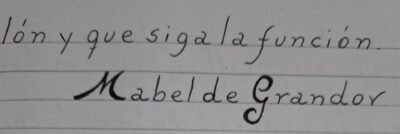 lón y que siga la función.
Mabel de Grandov